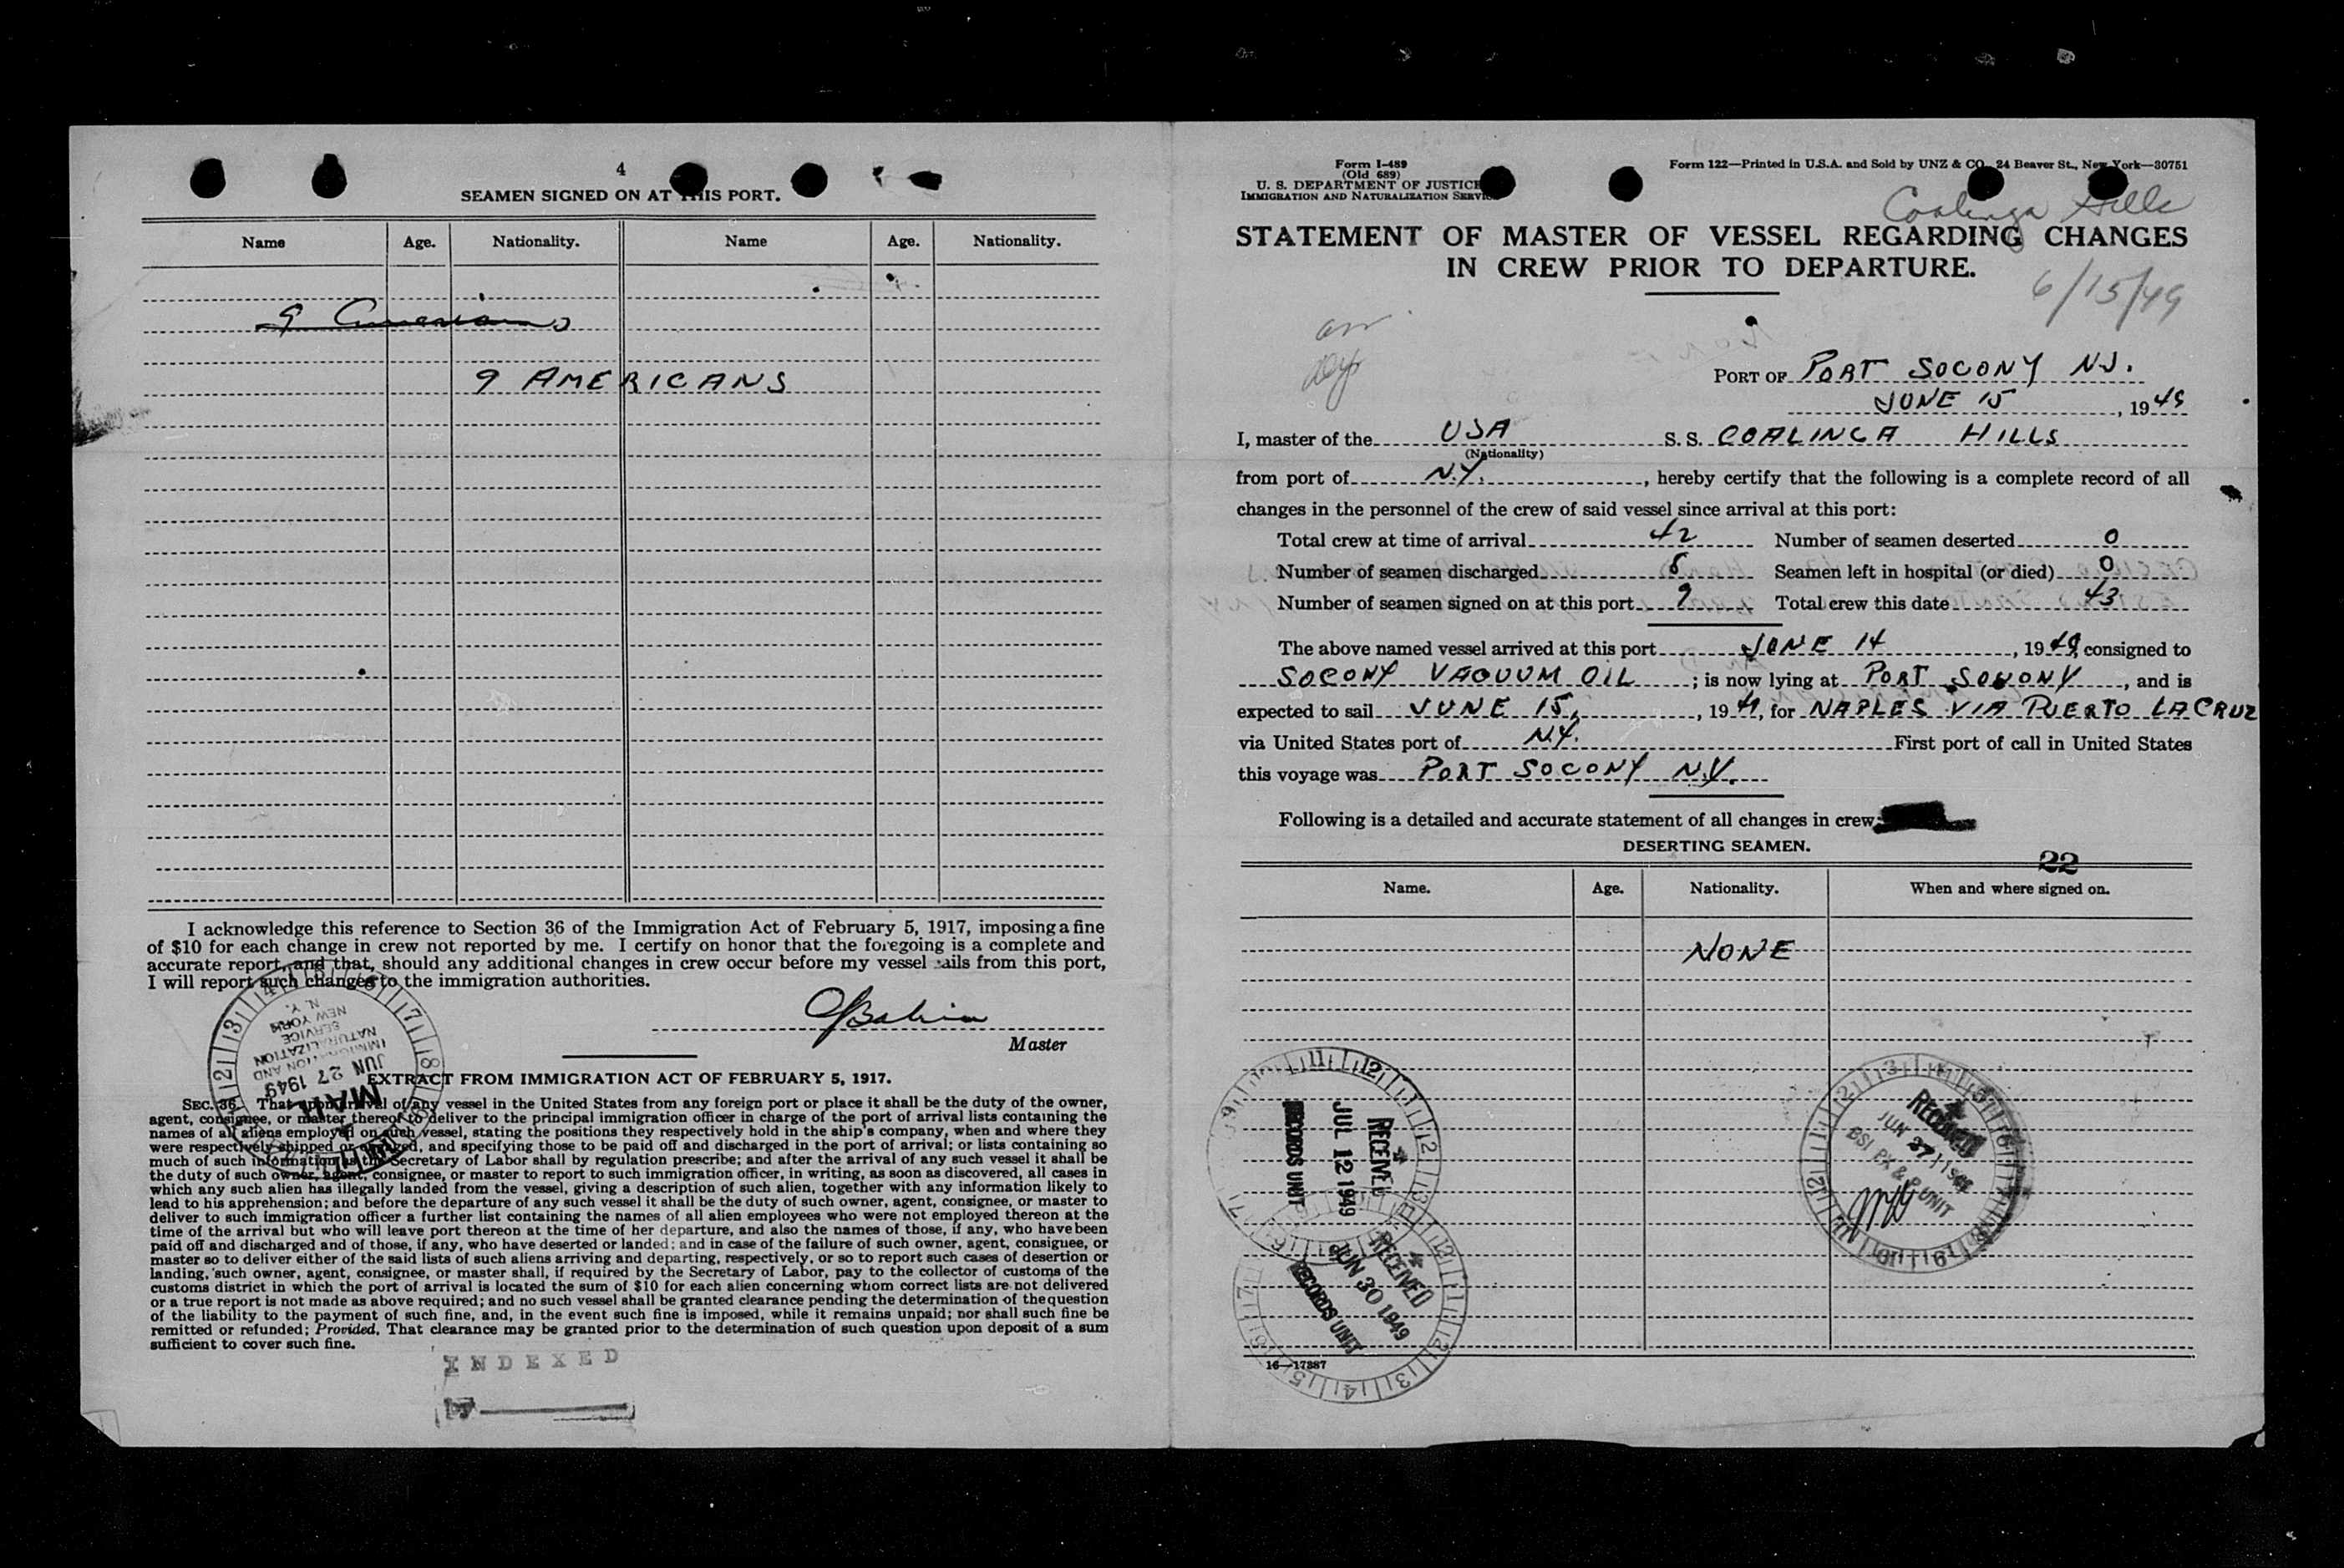 4
SEAMEN SIGNED ON AT THIS PORT.
Name Age. Nationality. Name Age. Nationality.
9 Americans
9 AMERICANS
I acknowledge this reference to Section 36 of the Immigration Act of February 5, 1917, imposing a fine
of $10 for each change in crew not reported by me. I certify on honor that the foregoing is a complete and
accurate report, and that, should any additional changes in crew occur before my vessel sails from this port,
I will report such changes to the immigration authorities.
Master
IMMIGRATION AND
NATURALIZATION
SERVICE
NEW YORK
N. Y.
JUN 27 1949
MAIL
EXTRACT FROM IMMIGRATION ACT OF FEBRUARY 5, 1917.
SEC. 36. That upon arrival of any vessel in the United States from any foreign port or place it shall be the duty of the owner,
agent, consignee, or master thereof to deliver to the principal immigration officer in charge of the port of arrival lists containing the
names of all aliens employed on such vessel, stating the positions they respectively hold in the ship's company, when and where they
were respectively shipped or engaged, and specifying those to be paid off and discharged in the port of arrival; or lists containing so
much of such information as the Secretary of Labor shall by regulation prescribe; and after the arrival of any such vessel it shall be
the duty of such owner, agent, consignee, or master to report to such immigration officer, in writing, as soon as discovered, all cases in
which any such alien has illegally landed from the vessel, giving a description of such alien, together with any information likely to
lead to his apprehension; and before the departure of any such vessel it shall be the duty of such owner, agent, consignee, or master to
deliver to such immigration officer a further list containing the names of all alien employees who were not employed thereon at the
time of the arrival but who will leave port thereon at the time of her departure, and also the names of those, if any, who have been
paid off and discharged and of those, if any, who have deserted or landed; and in case of the failure of such owner, agent, consignee, or
master so to deliver either of the said lists of such aliens arriving and departing, respectively, or so to report such cases of desertion or
landing, such owner, agent, consignee, or master shall, if required by the Secretary of Labor, pay to the collector of customs of the
customs district in which the port of arrival is located the sum of $10 for each alien concerning whom correct lists are not delivered
or a true report is not made as above required; and no such vessel shall be granted clearance pending the determination of the question
of the liability to the payment of such fine, and, in the event such fine is imposed, while it remains unpaid; nor shall such fine be
remitted or refunded; Provided, That clearance may be granted prior to the determination of such question upon deposit of a sum
sufficient to cover such fine.
INDEXED
by
Form I-489
(Old 689)
U. S. DEPARTMENT OF JUSTICE
IMMIGRATION AND NATURALIZATION SERVICE
Form 122—Printed in U.S.A. and Sold by UNZ & CO., 24 Beaver St., New York—30751
Coalinga Hills
STATEMENT OF MASTER OF VESSEL REGARDING CHANGES
IN CREW PRIOR TO DEPARTURE.
6/15/49
arr
dep
PORT OF PORT SOCONY N.J.
JUNE 15, 1949
I, master of the USA S. S. COALINGA HILLS
(Nationality)
from port of N.Y., hereby certify that the following is a complete record of all
changes in the personnel of the crew of said vessel since arrival at this port:
Total crew at time of arrival 42 Number of seamen deserted 0
Number of seamen discharged 8 Seamen left in hospital (or died) 0
Number of seamen signed on at this port 9 Total crew this date 43
The above named vessel arrived at this port JUNE 14, 1949, consigned to
SOCONY VACUUM OIL; is now lying at PORT SOCONY, and is
expected to sail JUNE 15, , 19 , for NAPLES VIA PUERTO LA CRUZ
via United States port of N.Y. First port of call in United States
this voyage was PORT SOCONY N.Y.
Following is a detailed and accurate statement of all changes in crew:
DESERTING SEAMEN.
22
Name. Age. Nationality. When and where signed on.
NONE
RECEIVED
JUL 12 1949
RECORDS UNIT
RECEIVED
JUN 30 1949
RECORDS UNIT
RECEIVED
JUN 27 1949
BSI PX & P UNIT
16—17387